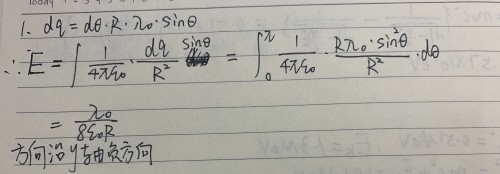 1. dq = dθ·R·λ₀·sinθ
∴ E = ∫ 1/4πε₀ · dq/R² sinθ = ∫₀^π 1/4πε₀ · Rλ₀·sin²θ/R² ·dθ
= λ₀/8ε₀R
方向沿y轴负方向